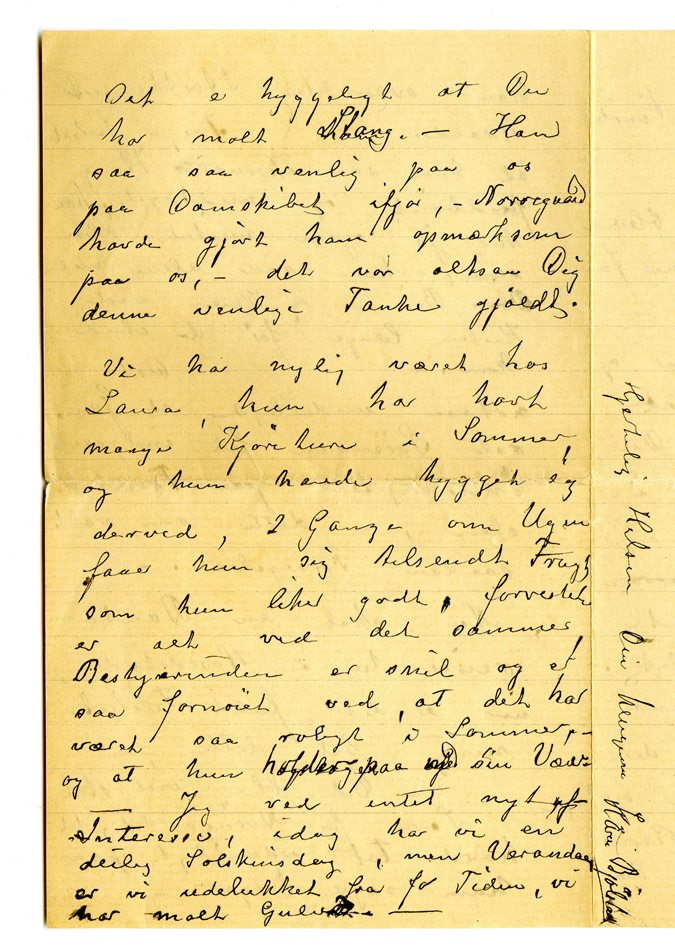 Det e hyggeligt at Du
har malt Slang. – Han
saa saa venlig paa os
paa Damskibet ifjor, – Norregaard
havde gjort ham opmærksom
paa os, – det var altsaa Dig
denne venlige Tanke gjældt.
Vi har nylig været hos
Laura, hun har havt
mange Kjöreture i Sommer,
og hun havde hygget sig
derved, 2 Gange om Ugen
faae hun sig tilsendt Frugt
som hun liker godt, forresten
er alt ved det samme,
Bestyrerinden er snil og er
saa fornöiet ved, at det har
været saa roligt i Sommer, –
og at hun paa sin
– Jeg ved intet nyt af
Interesse, idag har vi en
deilig Solskinsdag, men Verandaen
er vi udelukket fra for Tiden, vi
har malt Gulvet. –
Hjertelig Hilsen Din hengivne